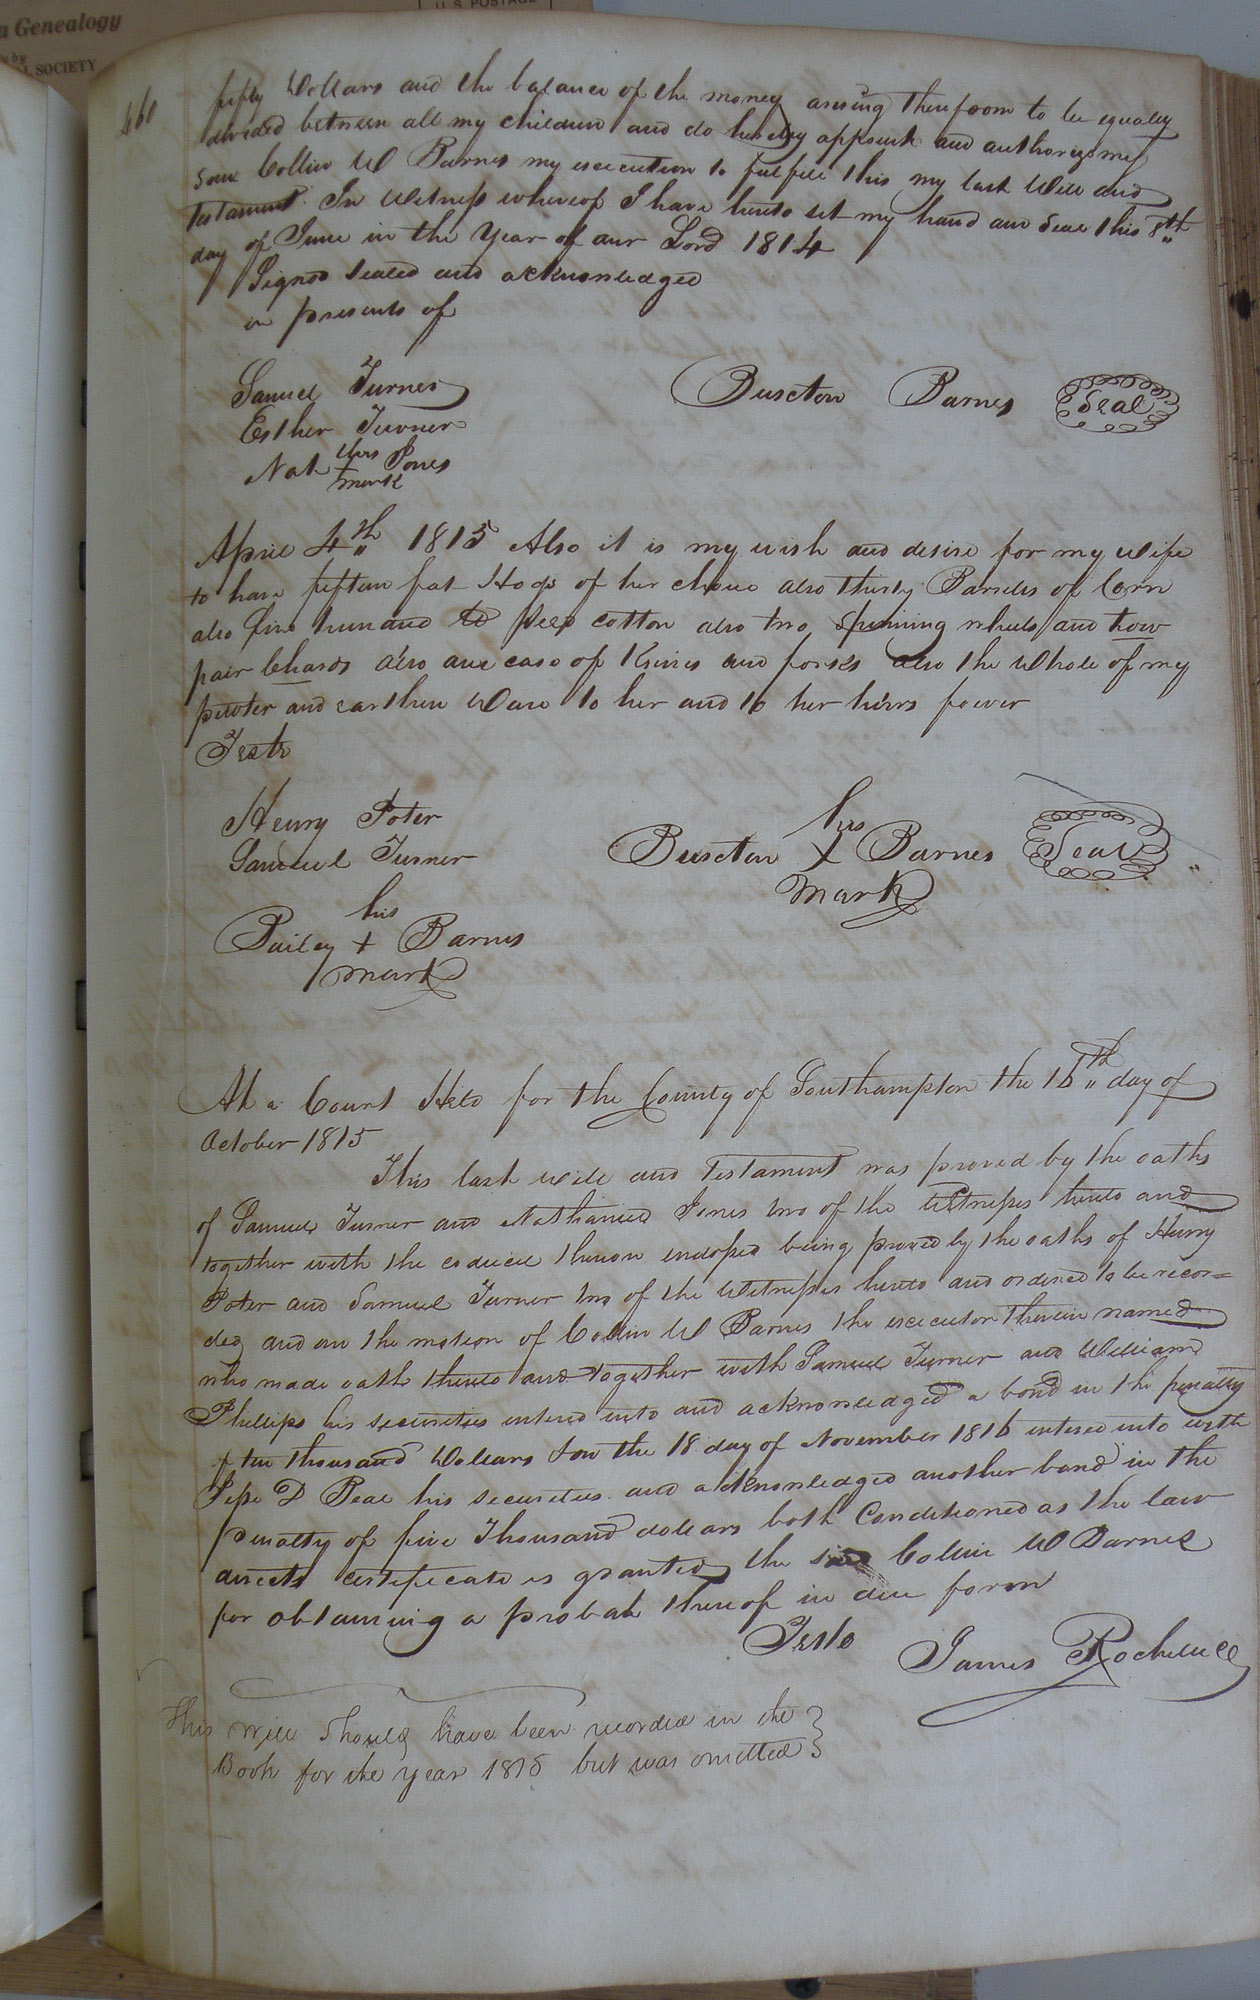 a Genealogy
SOCIETY
U.S. POSTAGE
460
fifty Dollars and the balance of the money arising therefrom to be equally
divided between all my children and do hereby appoint and authorize my
son Collin W Barnes my execution to fulfill this my last Will and
Testament. In Witness whereof I have hereto set my hand and Seal this 8th
day of June in the Year of our Lord 1814
Signed Sealed and acknowledged
in presents of
Samuel Turner
Esther Turner
Nat his Jones
mark
Buxton Barnes Seal
April 4th 1815 Also it is my wish and desire for my wife
to have fifteen fat Hogs of her choice also thirty Barrels of Corn
also five hundred seed cotton also two Spinning wheels and two
pair Chards also one case of Knives and forks also the Whole of my
pewter and earthen Ware to her and to her heirs forever
Teste
Henry Poter
Samuel Turner
his
Buxton X Barnes Seal
mark
his
Bailey + Barnes
mark
At a Court Held for the County of Southampton the 16th day of
October 1815
This last will and testament was proved by the oaths
of Samuel Turner and Nathaniel Jones two of the Witnesses hereto and
together with the codicil thereon endorsed being proved by the oaths of Henry
Poter and Samuel Turner two of the Witnesses hereto and ordered to be recor=
ded and on the motion of Collin W Barnes the executor therein named
who made oath thereto and together with Samuel Turner and William
Phillips his securities entered into and acknowledged a bond in the penalty
of ten thousand Dollars & on the 18 day of November 1816 entered into with
Jesse D Beal his securities and acknowledged another bond in the
penalty of five Thousand dollars both Conditioned as the law
directs certificate is granted the said Collin W Barnes
for obtaining a probate thereof in due form
Teste James Rochelle CC
This will should have been recorded in the
Book for the year 1815 but was omitted